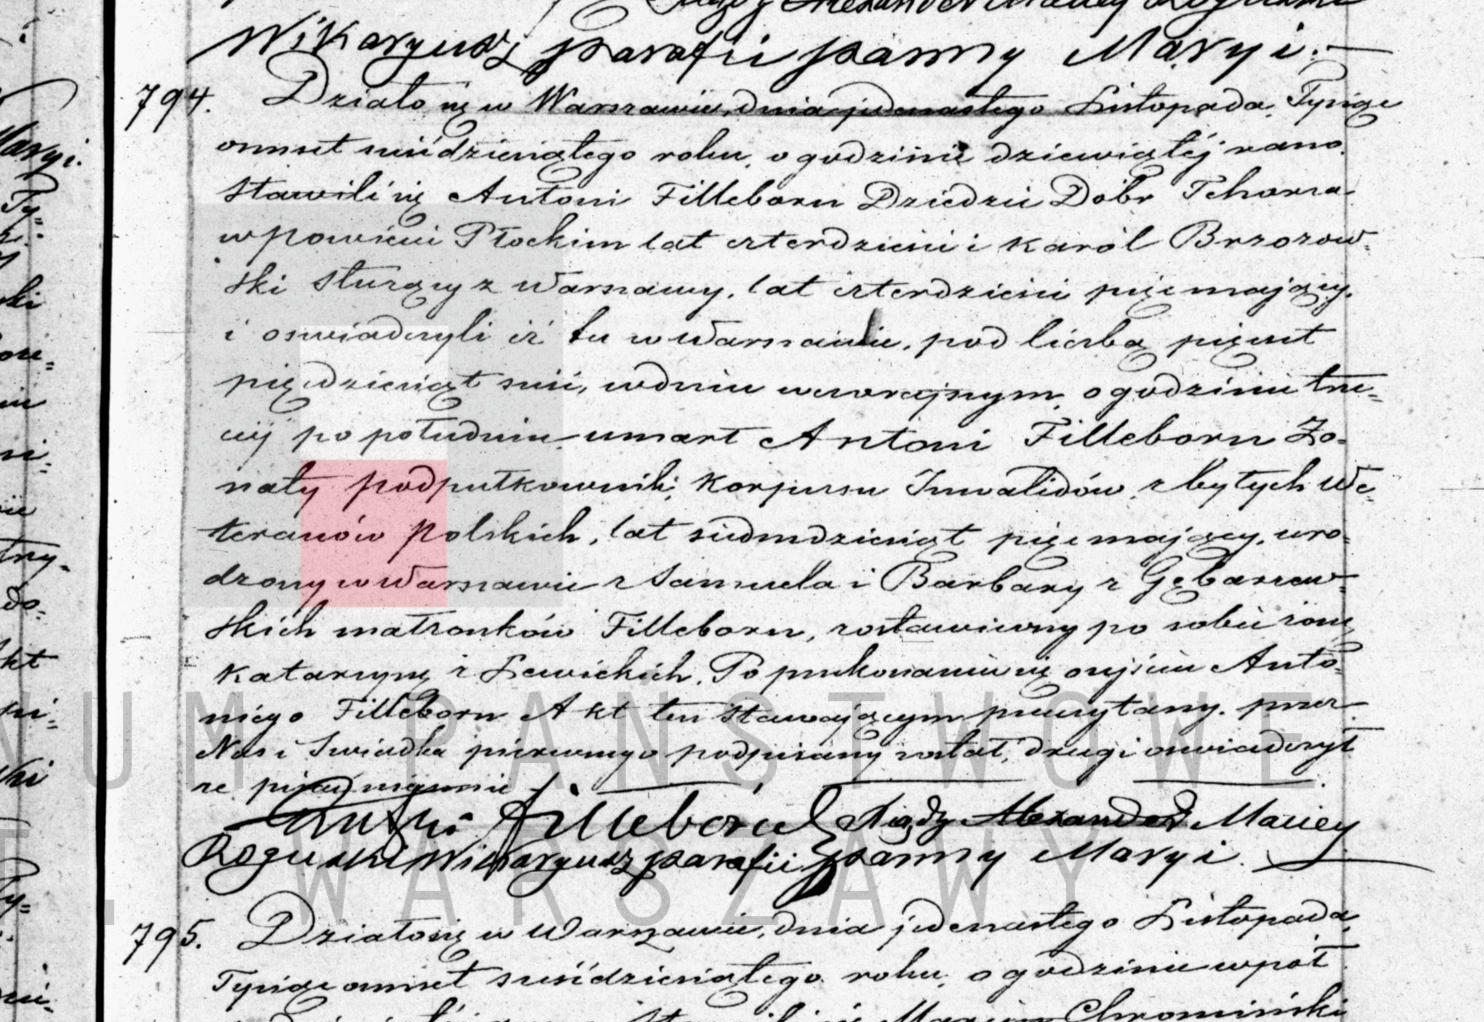 Wikaryusz parafii panny Maryi.
794. Działo się w Warszawie, dnia jedenastego Listopada, Tysiąc
ośmset sześdziesiątego roku, o godzinie dziewiątéj rano.
Stawili się Antoni Filleborn Dziedzic Dóbr
w Powiecie Płockim lat czterdzieści i Karól Brzozow-
ski Służący z Warszawy, lat czterdzieści pięć mający,
i oswiadczyli iż tu w Warszawie, pod liczbą pięćset
pięćdziesiąt sześć, w dniu wczorajszym, o godzinie trze-
ciéj po południu umarł Antoni Filleborn Żo-
naty podpułkownik, Korpusu Inwalidów, z byłych We-
teranów Polskich, lat siedmdziesiąt pięć mający, uro-
dzony w Warszawie z Samuela i Barbary z Gębarzew-
skich małżonków Filleborn, zostawiwszy po sobie żonę
Katarzynę z Lewickich. Po przekonaniu się o zejściu Anto-
niego Filleborn Akt ten Stawającym przeczytany, przez
Nas i Swiadka pierwszego podpisany został, drugi oswiadczył
że pisać nieumie
Antoni Filleborn Xiądz Alexander Maciey
Rogulski Wikaryusz parafii panny Maryi.
795. Działo się w Warszawie, dnia jedenastego Listopada,
Tysiąc ośmset sześdziesiątego roku, o godzinie wpół
Chromiński
ARCHIWUM PAŃSTWOWE
WARSZAWY